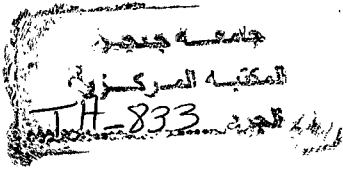 جامعة جيجل
المكتبة المركزية
الجرد TH-833